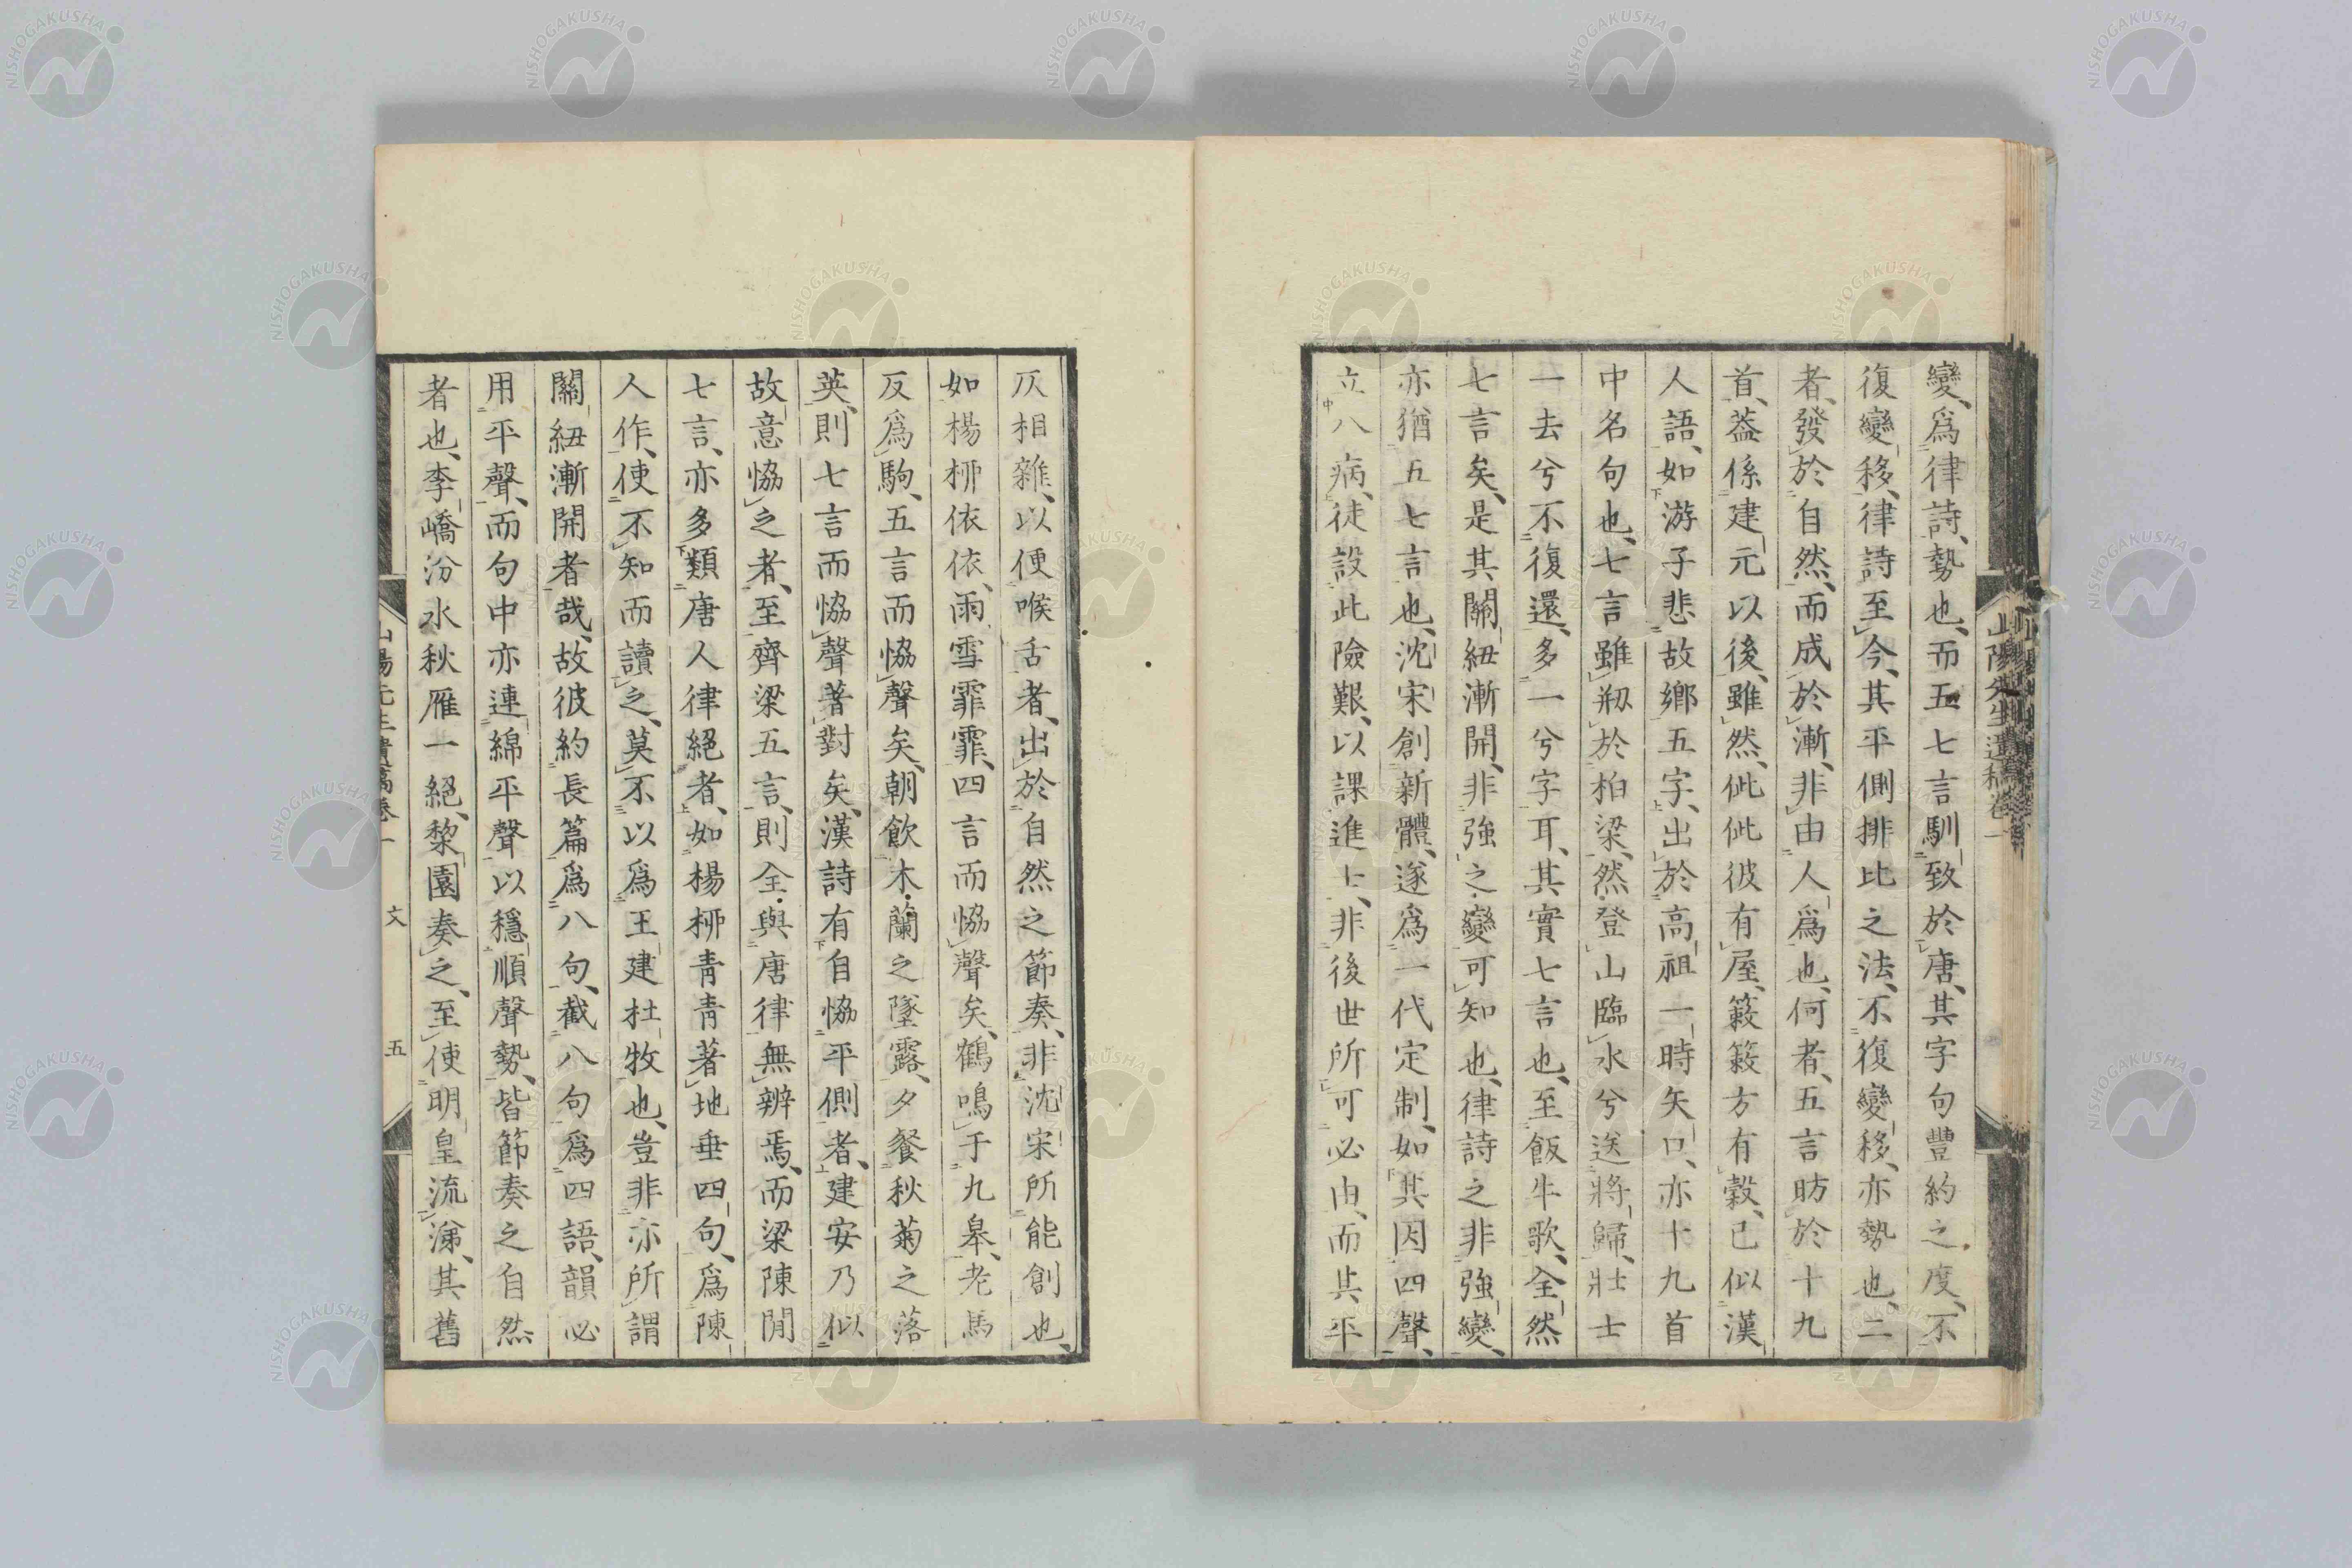 變、爲律詩、勢也、而五七言馴致於唐、其字句豐約之度、不
復變移、律詩至今、其平側排比之法、不復變移、亦勢也、二
者、發於自然、而成於漸、非由人爲也、何者、五言昉於十九
首、葢係建元以後、雖然、佌佌彼有屋、蔌蔌方有穀、已似漢
人語、如游子悲故鄉五字、出於高祖一時矢口、亦十九首
中名句也、七言雖剏於柏梁、然登山臨水兮送將歸、壯士
一去兮不復還、多一兮字耳、其實七言也、至飯牛歌、全然
七言矣、是其關紐漸開、非強之變可知也、律詩之非強變、
亦猶五七言也、沈宋創新體、遂爲一代定制、如其因四聲、
立八病、徒設此險艱、以課進士、非後世所可必由、而其平
仄相雜、以便喉舌者、出於自然之節奏、非沈宋所能創也、
如楊柳依依、雨雪霏霏、四言而恊聲矣、鶴鳴于九皋、老馬
反爲駒、五言而恊聲矣、朝飲木蘭之墜露、夕餐秋菊之落
英、則七言而恊聲著對矣、漢詩有自恊平側者、建安乃似
故意恊之者、至齊梁五言、則全與唐律無辨焉、而梁陳閒
七言、亦多類唐人律絕者、如楊柳靑靑著地垂四句、爲陳
人作、使不知而讀之、莫不以爲王建杜牧也、豈非亦所謂
關紐漸開者哉、故彼約長篇爲八句、截八句爲四語、韻必
用平聲、而句中亦連綿平聲以穩順聲勢、皆節奏之自然
者也、李嶠汾水秋雁一絕、棃園奏之、至使明皇流涕、其舊
山陽先生遺稿卷一
山陽先生遺稿卷一 文 五
NISHOGAKUSHA